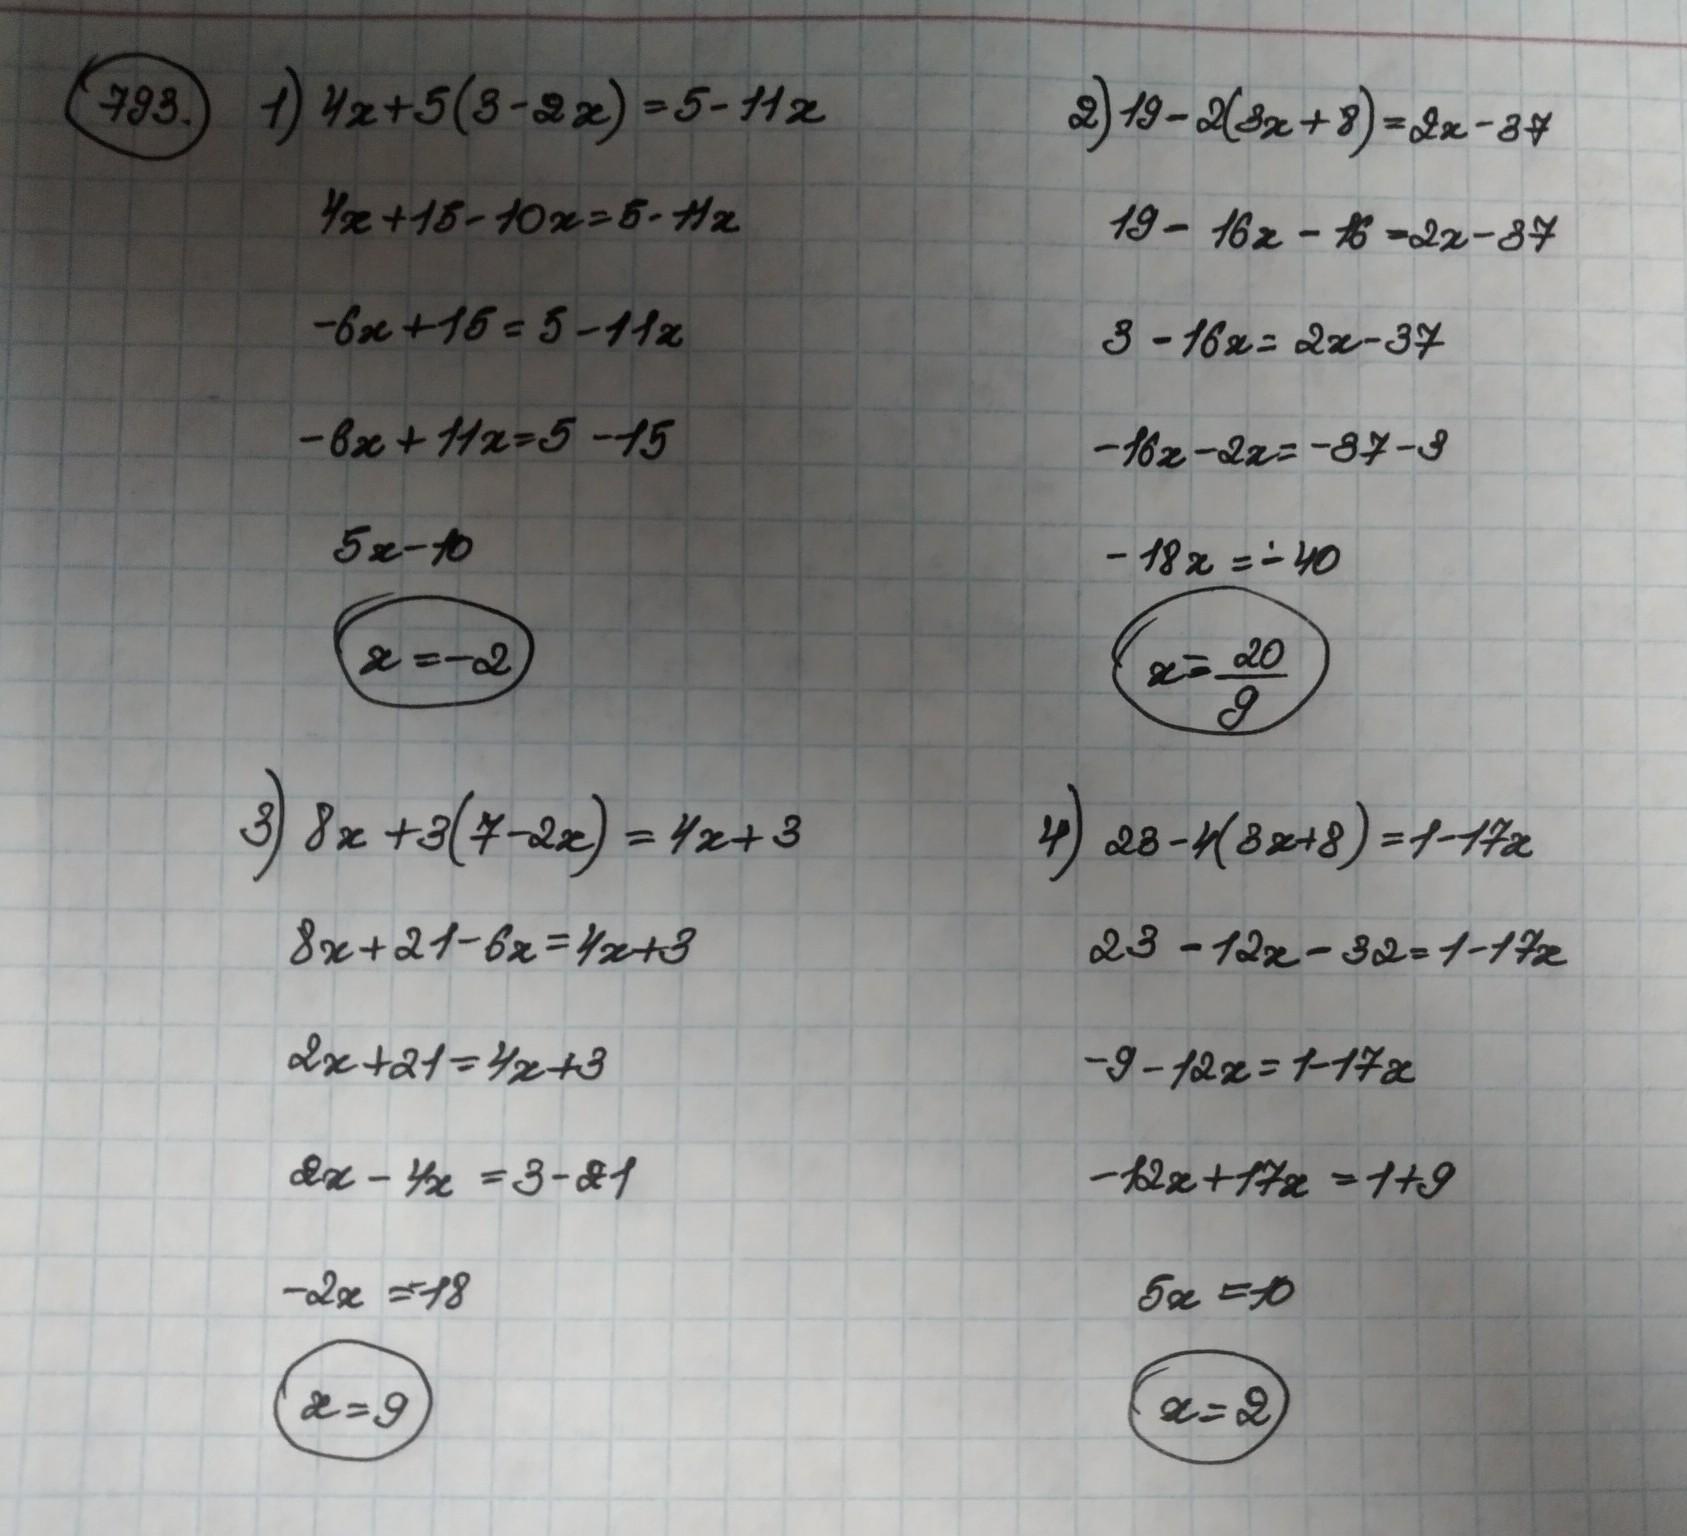 793. 1) 4x+5(3-2x)=5-11x
4x+15-10x=5-11x
-6x+15=5-11x
-6x+11x=5-15
5x-10
x=-2
2) 19-2(3x+8)=2x-37
19-16x-16=2x-37
3-16x=2x-37
-16x-2x=-37-3
-18x=-40
x=20/9
3) 8x+3(7-2x)=4x+3
8x+21-6x=4x+3
2x+21=4x+3
2x-4x=3-21
-2x=-18
x=9
4) 23-4(3x+8)=1-17x
23-12x-32=1-17x
-9-12x=1-17x
-12x+17x=1+9
5x=10
x=2